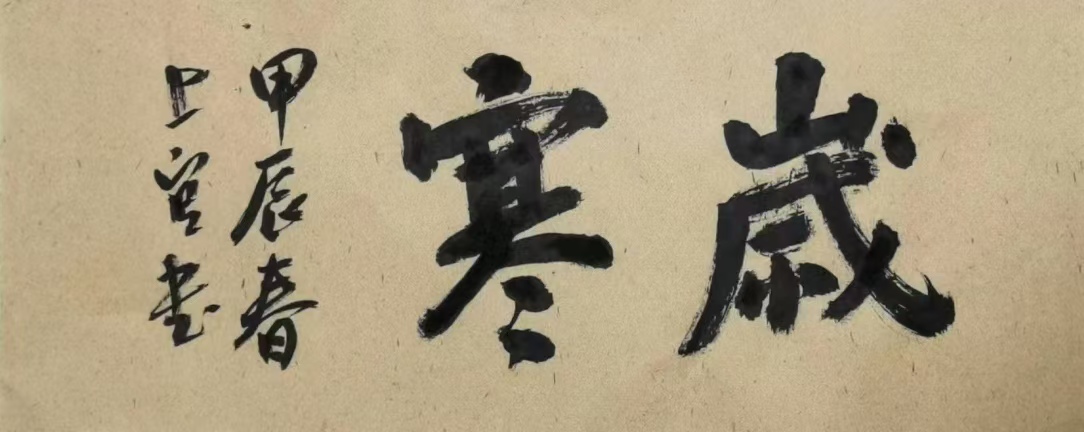 歲寒
甲辰春
上官書